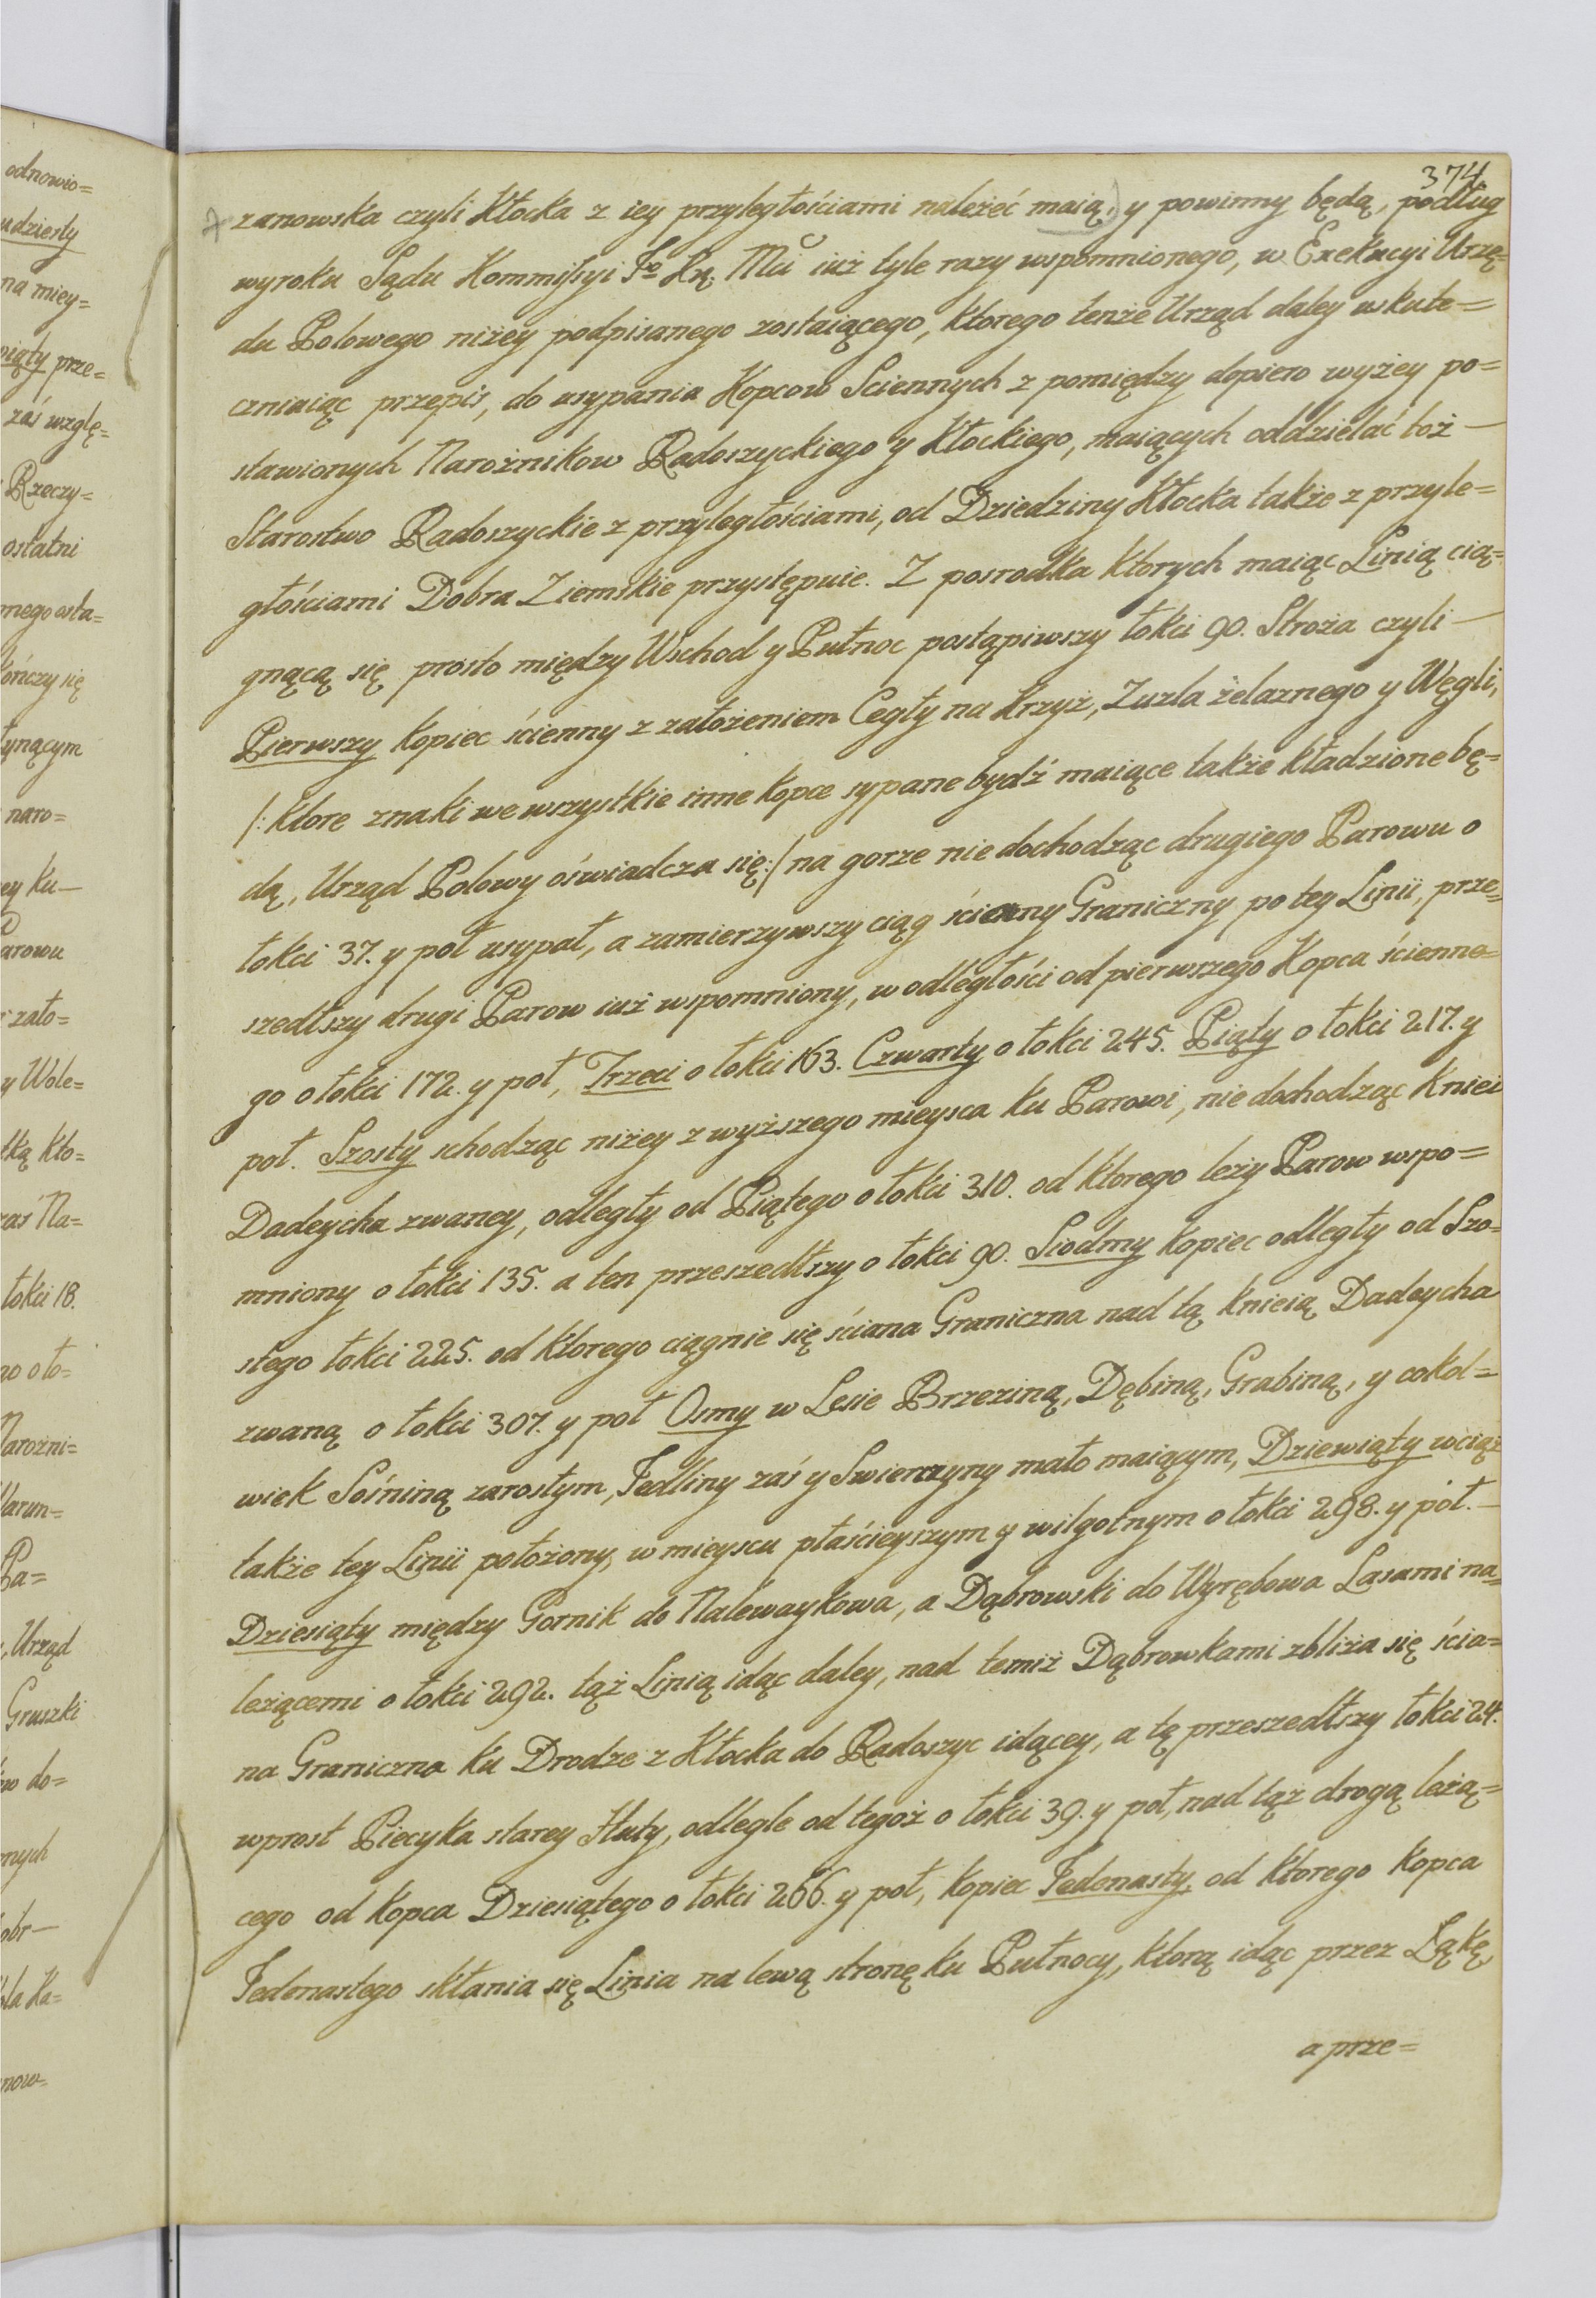 374
zanowska czyli Kłocka z iey przyległościami należeć maią) y powinny będą, podług
wyroku Sądu Kommissyi Jo Kr. Mci iuż tyle razy wspomnionego, w Exekucyi Urzę=
du Polowego niżey podpisanego zostaiącego, ktorego tenże Urząd daley uskute=
czniaiąc przepis, do usypania Kopcow Sciennych z pomiędzy dopiero wyżey po=
stawionych Narożnikow Radoszyckiego y Kłockiego, maiących oddzielać toż —
Starostwo Radoszyckie z przyległościami, od Dziedziny Kłocka także z przyle=
głościami Dobra Ziemskie przystępuie. Z posrodka ktorych maiąc Linią cią=
gnącą się prosto między Wschod y Pułnoc postąpiwszy łokci 90. Stroża czyli —
Pierwszy kopiec ścienny z założeniem Cegły na Krzyż, Zuzla żelaznego y Węgli,
/: ktore znaki we wszystkie inne kopce sypane bydź maiące także kładzione bę=
dą, Urząd Polowy oświadcza się :/ na gorze nie dochodząc drugiego Parowu o
łokci 37. y poł usypał, a zamierzywszy ciąg ścienny Graniczny po tey Linii, prze=
szedłszy drugi Parow iuż wspomniony, w odległości od pierwszego Kopca ścienne=
go o łokci 172. y poł, Trzeci o łokci 163. Czwarty o łokci 245. Piąty o łokci 217. y
poł. Szosty schodząc niżey z wyższego mieysca ku Parowi, nie dochodząc Kniei
Dadeycha zwaney, odległy od Piątego o łokci 310. od ktorego leży Parow wspo=
mniony o łokci 135. a ten przeszedłszy o łokci 90. Siodmy kopiec odległy od Szo=
stego łokci 225. od ktorego ciągnie się ściana Graniczna nad tą knieią Dadeycha
zwaną o łokci 307. y poł Osmy w Lesie Brzeziną, Dębiną, Grabiną, y cokol=
wiek Sośniną zarosłym, Jedliny zaś y Swierczyny mało maiącym, Dziewiąty wciąż
także tey Linii położony, w mieyscu płaścieyszym y wilgotnym o łokci 298. y poł. —
Dziesiąty między Gornik do Nalewaykowa, a Dąbrowski do Wyrębowa Lasami na=
leżącemi o łokci 292. tąż Linią idąc daley, nad temiż Dąbrowkami zbliża się ścia=
na Graniczna ku Drodze z Kłocka do Radoszyc idącey, a tę przeszedłszy łokci 24.
wprost Piecyka starey Huty, odległe od tegoż o łokci 39. y poł, nad tąż drogą leżą=
cego od kopca Dziesiątego o łokci 266. y poł, kopiec Jedenasty, od ktorego kopca
Jedenastego skłania się Linia na lewą stronę ku Pułnocy, ktorą idąc przez Łąkę,
a prze=
odnowio=
udziesty
na miey=
piąty prze=
zaś wzglę=
Rzeczy=
ostatni
kończy się
naro=
ey ku —
Parowu
zało=
y Wole=
łką kło=
zaś Na=
łokci 18.
Narożni=
Pa=
, Urząd
Gruszki